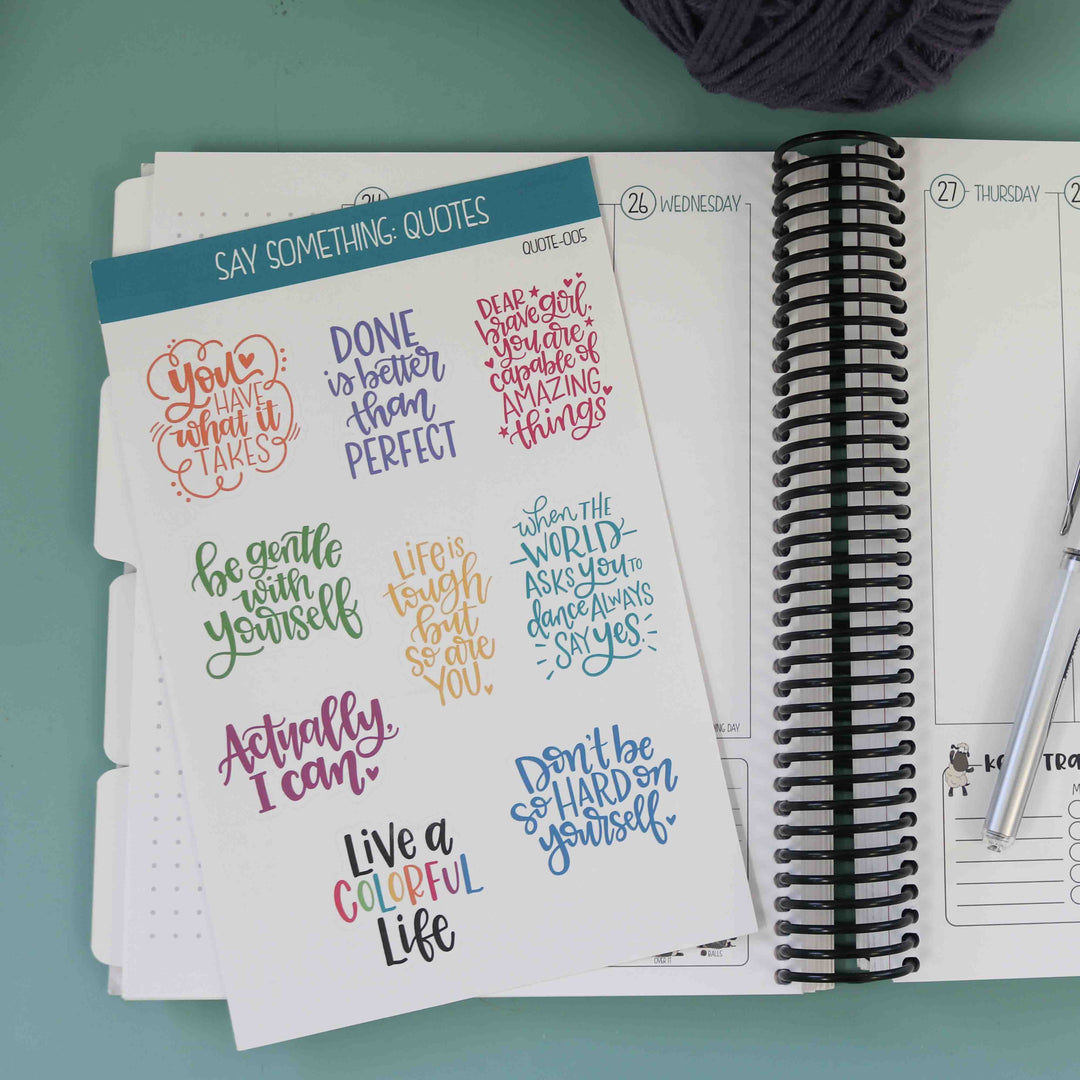 SAY SOMETHING: QUOTES
QUOTE-005
You
HAVE
what it
TAKES
DONE
is better
than
PERFECT
DEAR
brave girl,
you are
capable of
AMAZING
things
be gentle
with
yourself
LIFE IS
tough
but
so are
YOU
when THE
WORLD
ASKS you TO
dance ALWAYS
SAY yes.
Actually,
I can
Don't be
so HARD on
yourself
Live a
COLORFUL
Life
26 WEDNESDAY
27 THURSDAY
OVER IT
BALLS